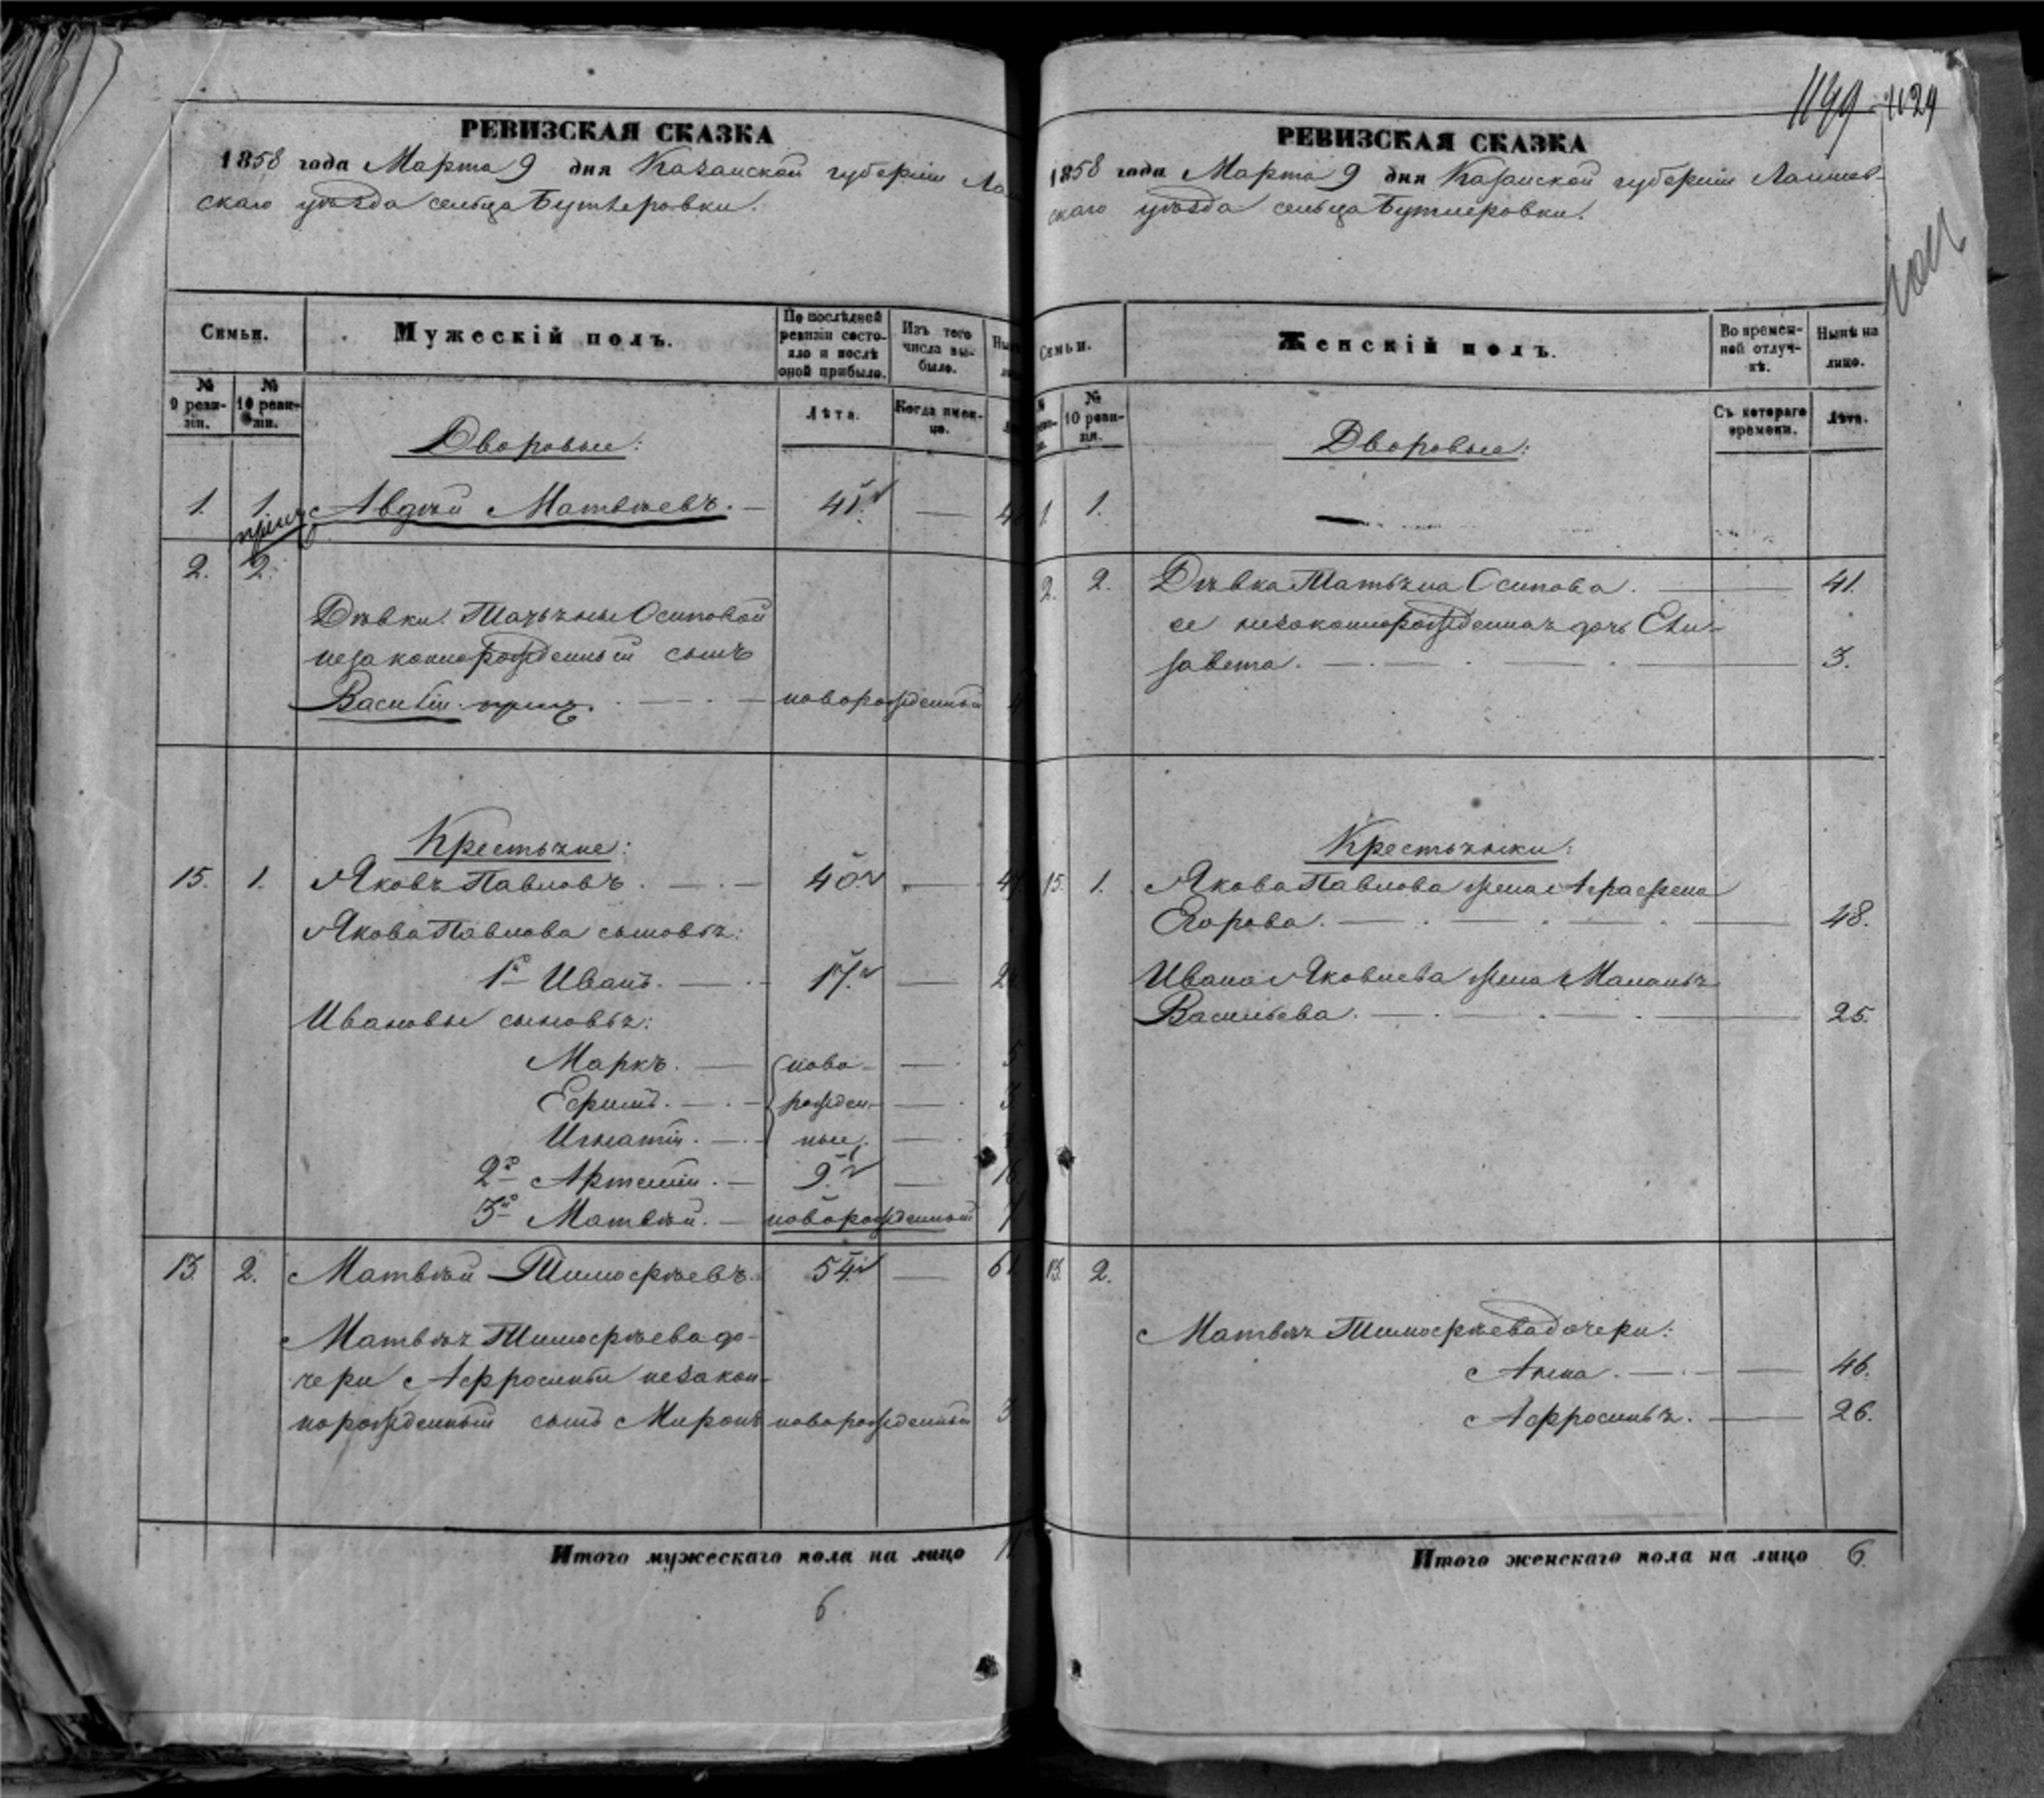 РЕВИЗСКАЯ СКАЗКА
1858 года Марта 9 дня Казанской губерніи Лаи
скаго уѣзда сельца Бутлеровки.
Семьи.
Мужескій полъ.
По послѣдней ревизіи состояло и послѣ оной прибыло.
Изъ того числа выбыло.
№ 9 ревизіи.
№ 10 ревизіи.
Лѣта.
Когда именно.
Дворовые:
1. 1. Авдѣй Матвѣевъ. — 41. —
2. 2.
Дѣвки Татьяны Осиповой
незаконнорожденный сынъ
Василій — новорожденный
Крестьяне:
15. 1. Яковъ Павловъ. — 40. —
Якова Павлова сыновья:
1й Иванъ. — 17. —
Ивановы сыновья:
Маркъ. — ново- —
Ефимъ. — рожден- —
Игнатій. — ные. —
2й Артемій. — 9. — 16
3й Матвѣй. — новорожденный 7
13. 2. Матвѣй Тимофѣевъ. 54. — 61
Матвѣя Тимофѣева до-
чери Афросиньи незакон-
норожденный сынъ Миронъ новорожденный 3
Итого мужескаго пола на лицо 11
6.
1149 1124
РЕВИЗСКАЯ СКАЗКА
1858 года Марта 9 дня Казанской губерніи Лаишев-
скаго уѣзда сельца Бутлеровки.
Семьи.
Женскій полъ.
Во временной отлучкѣ.
Нынѣ на лицо.
№ 10 ревизіи.
Съ котораго времени.
Лѣта.
Дворовые:
1. 1. —
2. 2. Дѣвка Татьяна Осипова. — 41.
ее незаконнорожденная дочь Ели-
завета. — 3.
Крестьянки:
15. 1. Якова Павлова жена Аграфена
Егорова. — 48.
Ивана Яковлева жена Маланья
Васильева. — 25.
13. 2.
Матвѣя Тимофѣева дочери:
Анна. — 46.
Афросинья. — 26.
Итого женскаго пола на лицо 6.